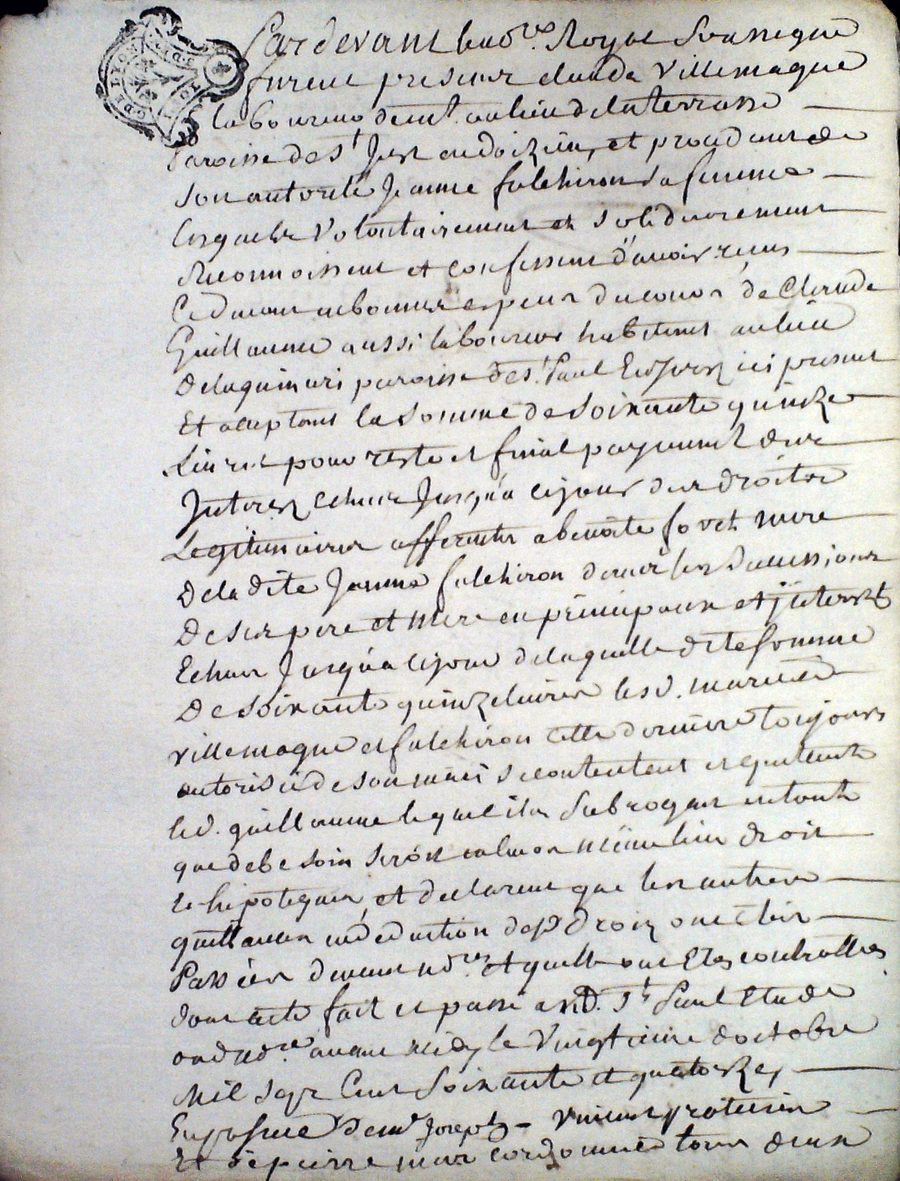 Pardevant le no.re Royal Soussigné
furent présents Claude Villemagne
laboureur demt. au lieu de la terrasse
paroisse de st Just en doizieu, et procedant de
Son autorité Jeanne falchiron sa femme
lesquels volontairement et solidairement
Reconnoissent et confessent d'avoir reçus
Ci devant en bonnes especes du cours, de Claude
Guillaume aussi laboureur habitant au lieu
De la paroisse de st. Paul En Jarez ici présent
Et aceptant la Somme de Soixante quinze
Livres pour reste et final payement des
Interez echeus Jusqu'a ce jour des droits
Legitimaires afferents a benoite mere
De la dite Jeanne falchiron dans les Sucessions
De ses pere et mere en principaux et jnterest
Echeus Jusqu'a ce jour de laquelle dite somme
De Soixante quinze livres les d. mariés
villemagne et falchiron cette derniere toujours
autorisée de son mari se contentent et quittent
le d. guillaume lequel ils Subrogent en tout
que de besoin seroit en leur même lieu droit
et hipoteques, et declarent que les autres
quittances en deduction desd. droits ont eté
Passées devant no.res et quelles ont Etés controllées
dont acte fait et passé aud. St Paul Etude
dud no.re avant midy le Vingtieme doctobre
Mil Sept Cent Soixante et quatorze,
En presence de Joseph Vincent praticien
Et de pierre cordonnier tous deux